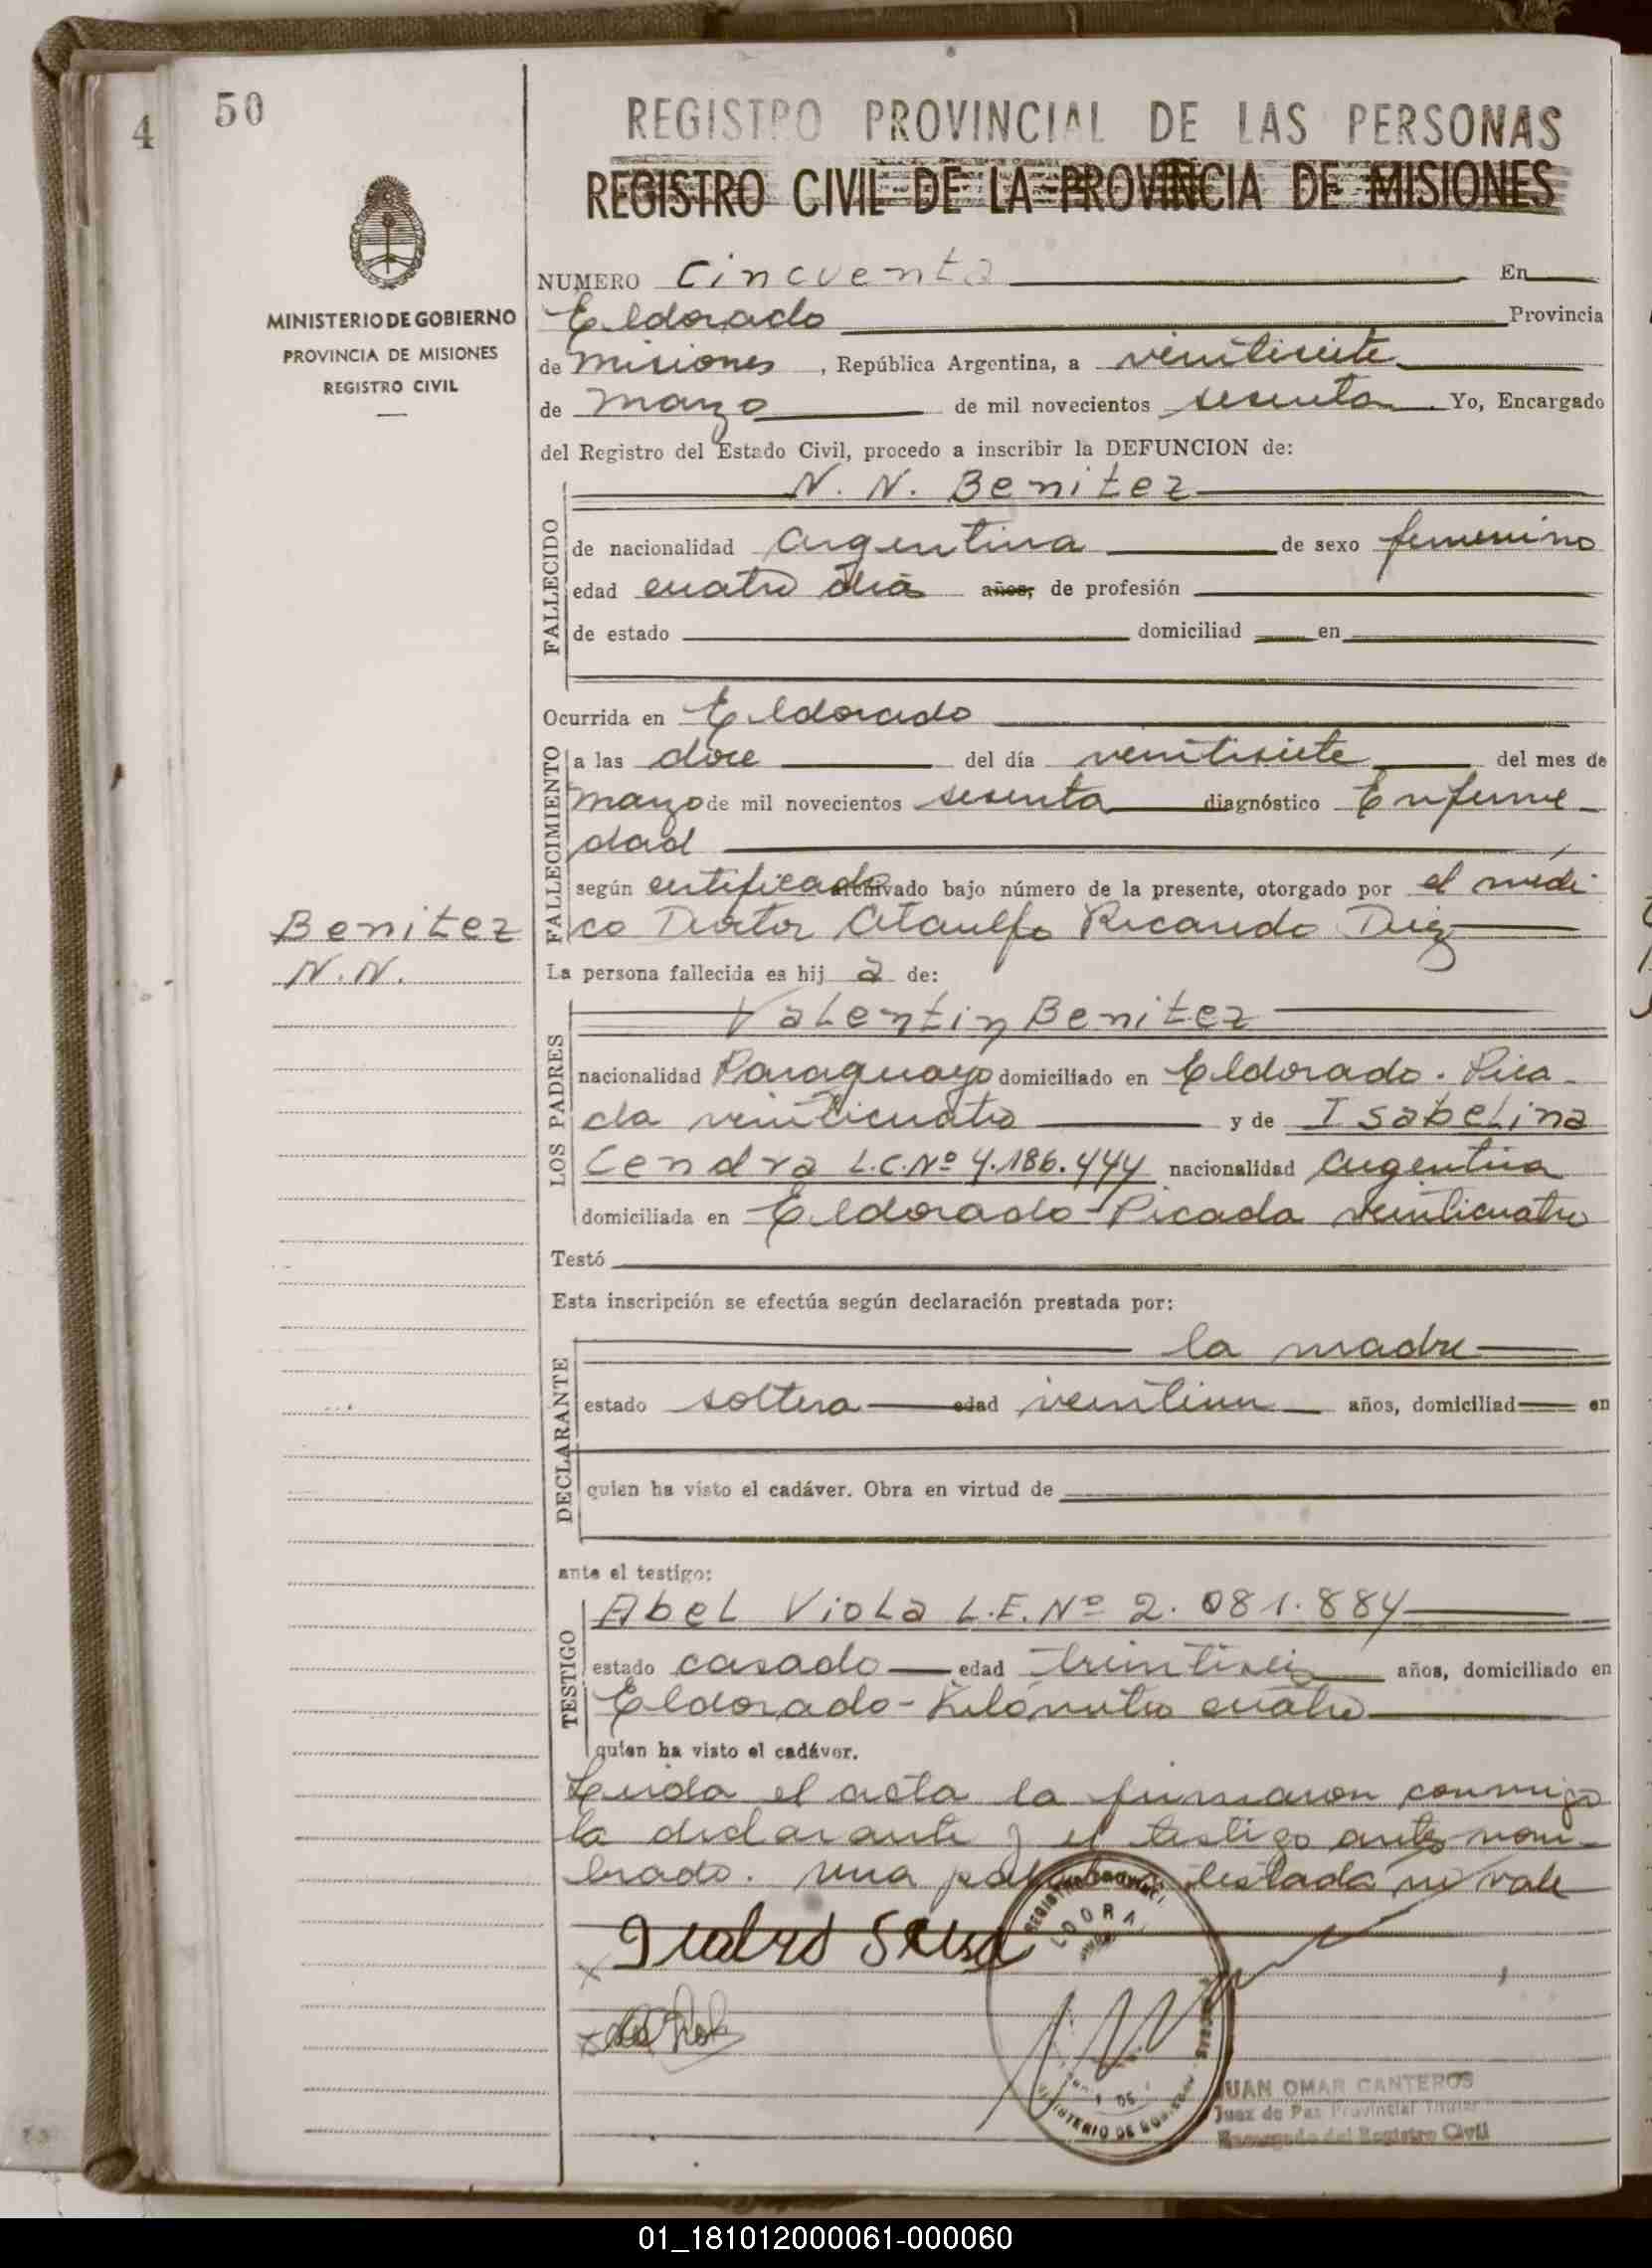 4
50
REGISTRO PROVINCIAL DE LAS PERSONAS
REGISTRO CIVIL DE LA PROVINCIA DE MISIONES
MINISTERIO DE GOBIERNO
PROVINCIA DE MISIONES
REGISTRO CIVIL
NUMERO Cincuenta En
Eldorado Provincia
de Misiones, República Argentina, a veintisiete
de Marzo de mil novecientos sesenta. Yo, Encargado
del Registro del Estado Civil, procedo a inscribir la DEFUNCION de:
FALLECIDO
N. N. Benitez
de nacionalidad argentina de sexo femenino
edad cuatro dias años, de profesión
de estado domiciliad en
Ocurrida en Eldorado
FALLECIMIENTO
a las doce del día veintisiete del mes de
marzo de mil novecientos sesenta diagnóstico Enferme
dad
según certificado archivado bajo número de la presente, otorgado por el médi
co Doctor Ataulfo Ricardo Diez
Benitez
N.N.
La persona fallecida es hij a de:
LOS PADRES
Valentin Benitez
nacionalidad Paraguayo domiciliado en Eldorado. Pica
da veinticuatro y de Isabelina
Cendra L.C.Nº 4.186.444 nacionalidad argentina
domiciliada en Eldorado-Picada veinticuatro
Testó
Esta inscripción se efectúa según declaración prestada por:
DECLARANTE
la madre
estado soltera edad veintiun años, domiciliad en
quien ha visto el cadáver. Obra en virtud de
ante el testigo:
TESTIGO
Abel Viola L.E.Nº 2.081.884
estado casado edad treintiseis años, domiciliado en
Eldorado-Kilómetro cuatro
quien ha visto el cadáver.
Leida el acta la firmaron conmigo
la declarante y el testigo antes nom-
brado. Una palabra testada no vale
JUAN OMAR CANTEROS
Juez de Paz Provincial Titular
Encargado del Registro Civil
01_181012000061-000060